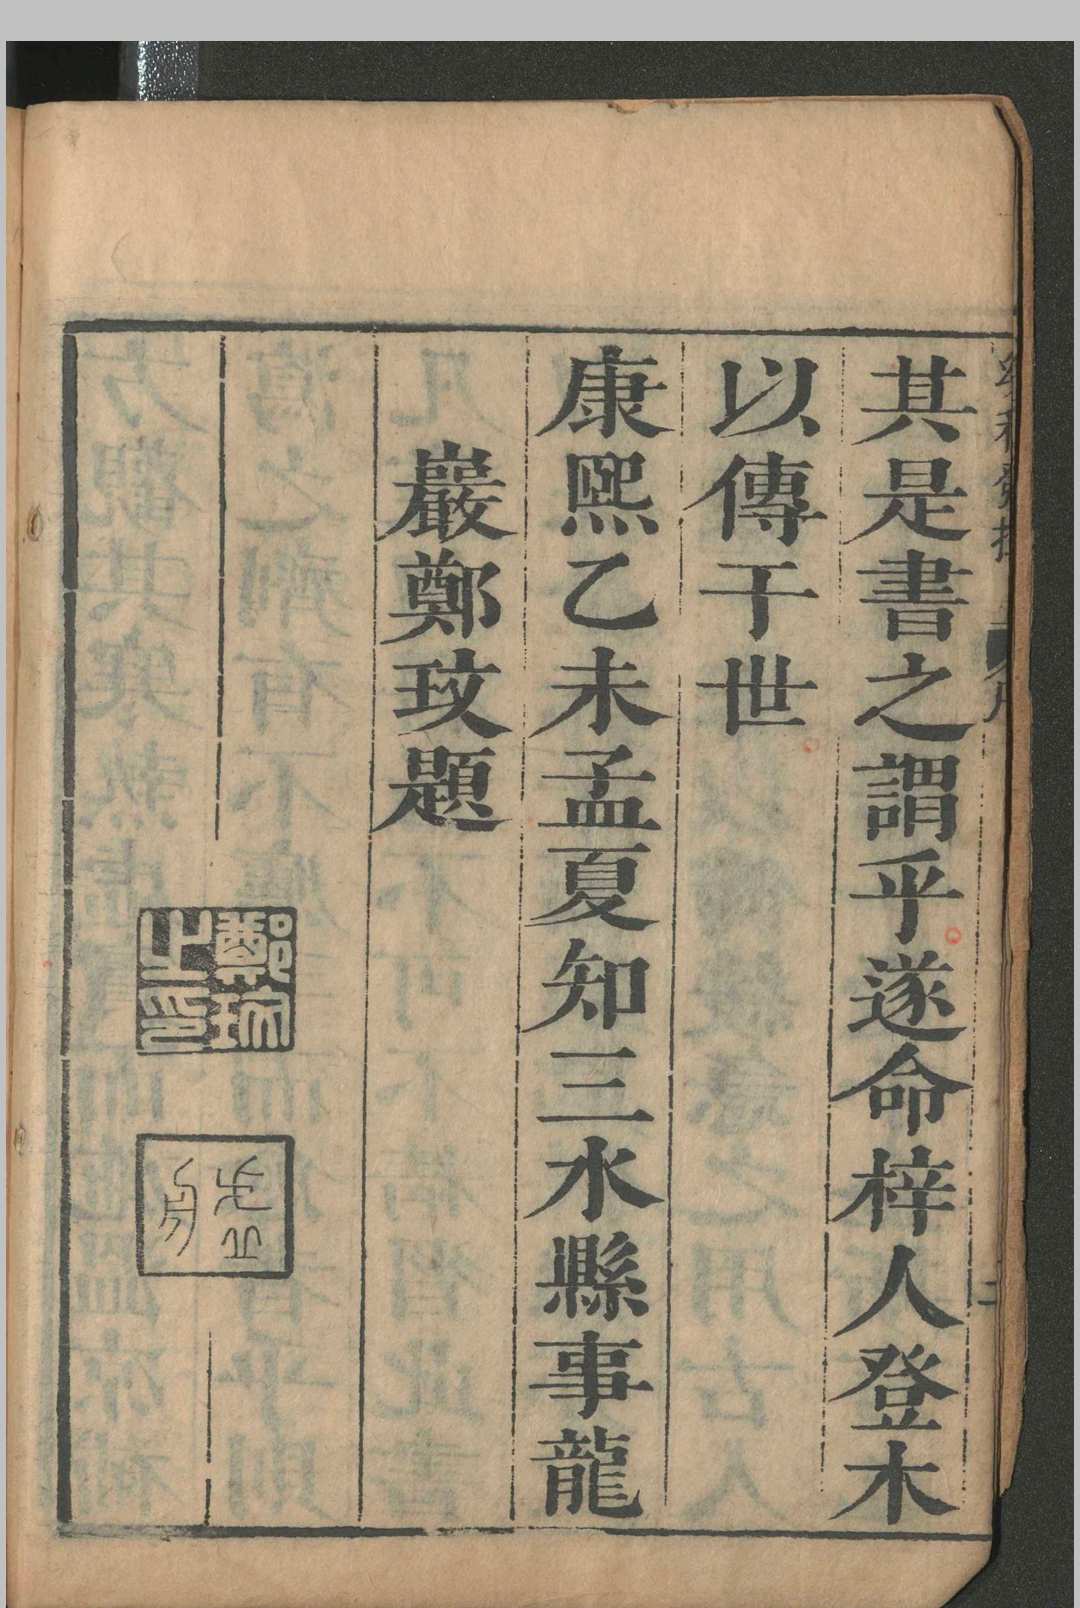 其是書之謂乎遂命梓人登木
以傳于世
康熙乙未孟夏知三水縣事龍
巖鄭玟題
鄭玟之印